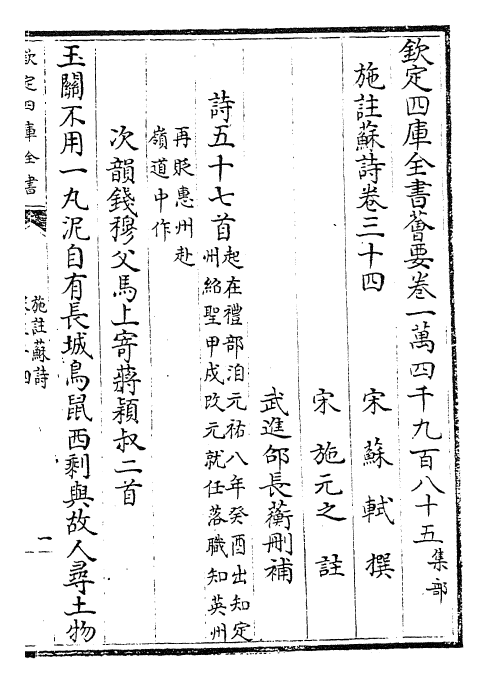 欽定四庫全書薈要卷一萬四千九百八十五集部
施註蘇詩卷三十四
宋蘇軾撰
宋施元之註
武進邵長蘅刪補
詩五十七首
起在禮部洎元祐八年癸酉出知定
州紹聖甲戌改元就任落職知英州
再貶惠州赴
嶺道中作
次韻錢穆父馬上寄蔣穎叔二首
玉關不用一丸泥自有長城鳥鼠西剩與故人尋土物
欽定四庫全書
施註蘇詩
一